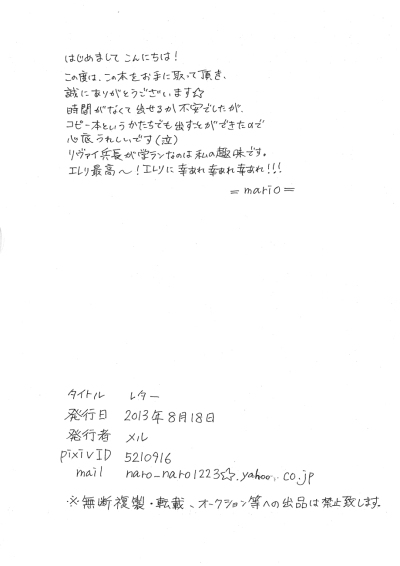 はじめまして こんにちは!
この度は、この本をお手に取って頂き、
誠にありがとうございます☆
時間がなくて出せるか不安でしたが、
コピー本というかたちでも出すことができたので
心底うれしいです(泣)
リヴァイ兵長が学ランなのは私の趣味です。
エレリ最高〜!エレリに幸あれ幸あれ幸あれ!!!
=mario=
タイトル レター
発行日 2013年8月18日
発行者 メル
pixivID 5210916
mail naro_naro1223☆.yahoo.co.jp
※無断複製・転載、オークション等への出品は禁止致します。